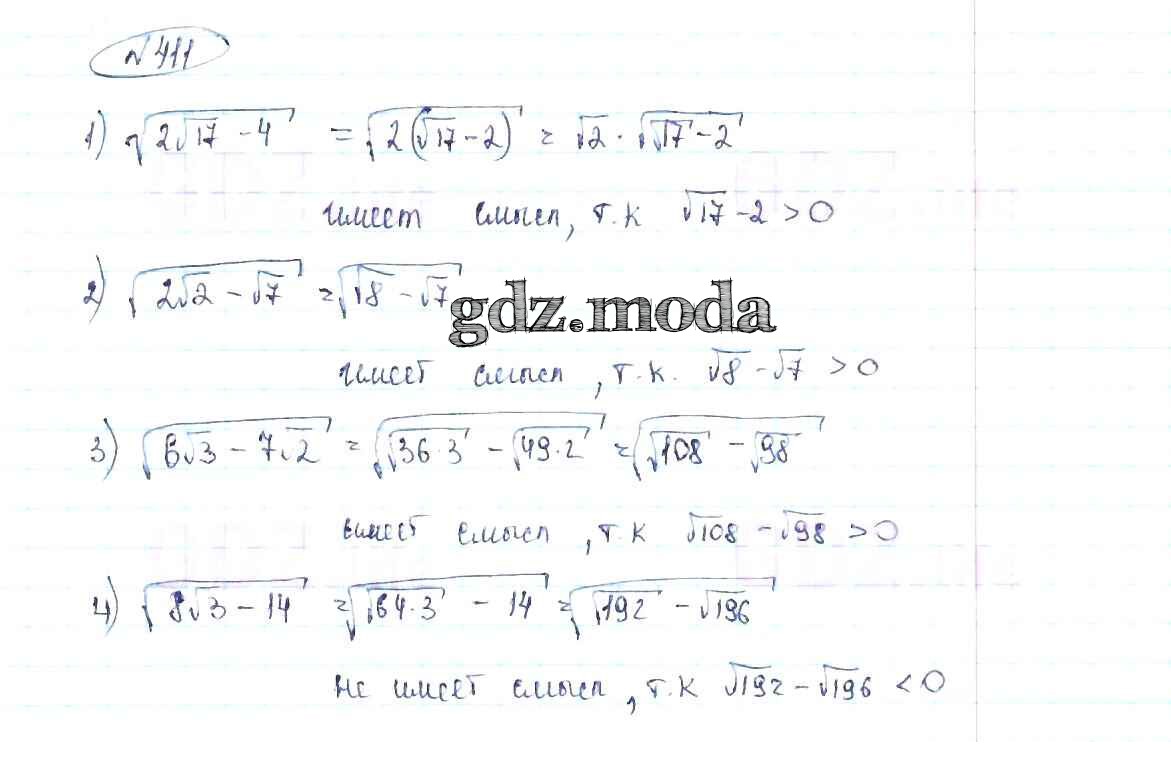 № 411
1) √(2√17 - 4) = √(2(√17 - 2)) = √2 · √(√17 - 2)
имеет смысл, т.к √17 - 2 > 0
2) √(2√2 - √7) = √(√8 - √7)
gdz.moda
имеет смысл, т.к. √8 - √7 > 0
3) √(6√3 - 7√2) = √(√36·3 - √49·2) = √(√108 - √98)
имеет смысл, т.к √108 - √98 > 0
4) √(8√3 - 14) = √(√64·3 - 14) = √(√192 - √196)
не имеет смысл, т.к √192 - √196 < 0